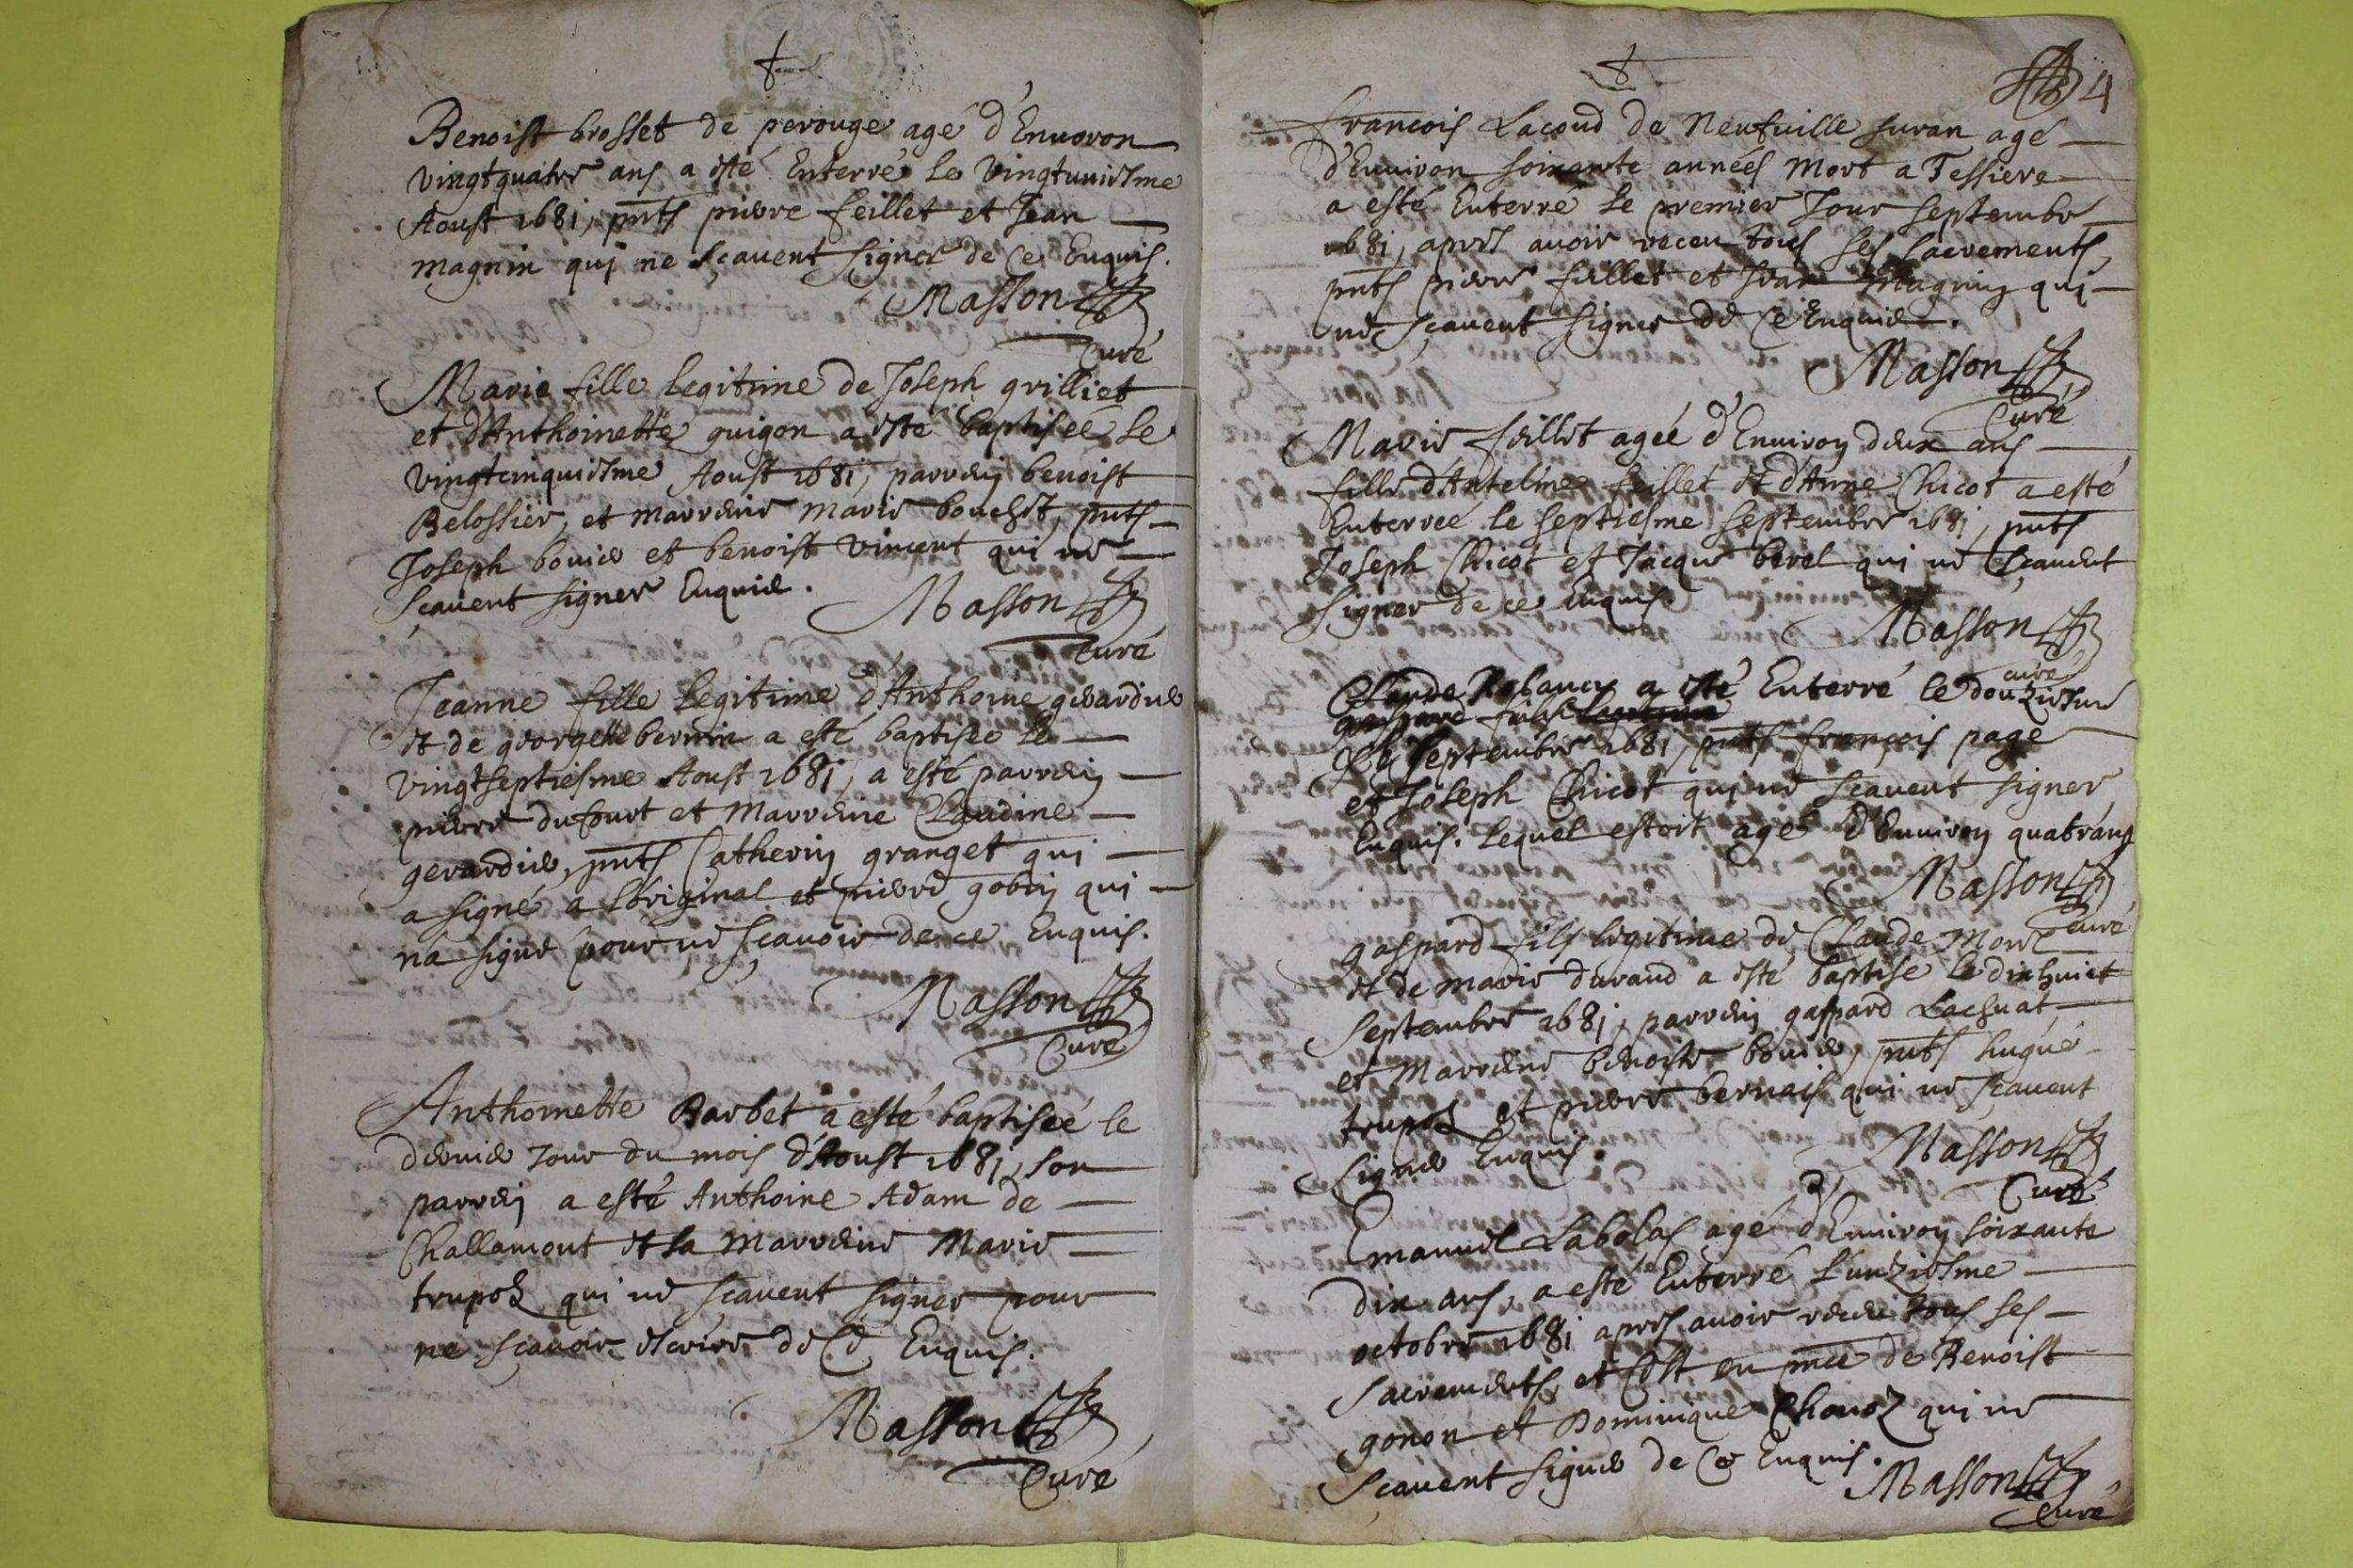 Benoist brosset de perouge agé d'Enuoron
vingtquatre ans a esté Enterré le vingtuniesme
Aoust 1681, pnts pierre feillet et Jean
magnin qui ne sçauent signer de ce Enquis.
Masson
Curé
Marie fille legitime de Joseph grilliet
et d'Anthoinette guigon a esté baptiseé le
vingtcinquiesme Aoust 1681, parrein benoist
Belossier, et marreine marie bouchet, pnts
Joseph bouier et benoist vincent qui ne
sçauent signer Enquis.
Masson
Curé
Jeanne fille legitime d'Anthoine girardier
et de georgette bernin a esté baptisee le
vingtseptiesme Aoust 1681, a esté parrein
pierre dufourt et Marreine Claudine
gerardier, pnts Catherin granget qui
a signé a L'original et pierre gobin qui
n'a signé pour ne sçauoir de ce Enquis.
Masson
Curé
Anthoinette Barbet a esté baptiseé le
dernier Jour du mois d'Aoust 1681, son
parrein a esté Anthoine Adam de
Challamont et sa Marreine Marie
trupoz qui ne sçauent signer pour
ne sçauoir escrire de Ce Enquis.
Masson
Curé
4
francois Lacoud de Neufuille suran agé
d'Enuiron soixante années mort a Tessiere
a esté Enterré le premier Jour septembre
1681, apres auoir receu tous ses sacrements,
pnts pierre feillet et Jean Magnin qui
ne sçauent signer de ce Enquis.
Masson
Curé
Marie feillet ageé d'Enuiron deux ans
fille d'Antelme feillet et d'Anne Chicot a esté
Enterreé le septiesme septembre 1681, pnts
Joseph Chicot et Jacque berel qui ne sçauent
signer de ce Enquis.
Masson
curé
Claude a esté Enterré le douziesme
gaspard fils legitime
septembre 1681, pnts françois page
et Joseph Chicot qui ne sçauent signer
Enquis. lequel estoit agé d'Enuiron quatr'ans
Masson
Curé
gaspard fils legitime de Claude morel
et de marie durand a esté baptise le dixhuict
septembre 1681, parrein gaspard Lachuat
et Marreine benoiste bouier, pnts hugue
trupoz et pierre bernais qui ne sçauent
signer Enquis.
Masson
Curé
Emanuel Labolas agé d'Enuiron soixante
dix ans, a esté Enterré l'unziesme
octobre 1681 apres auoir receu tous ses
sacrements, et C'est en pnce de Benoist
gonon et Dominique Chanoz qui ne
sçauent signer de Ce Enquis.
Masson
Curé